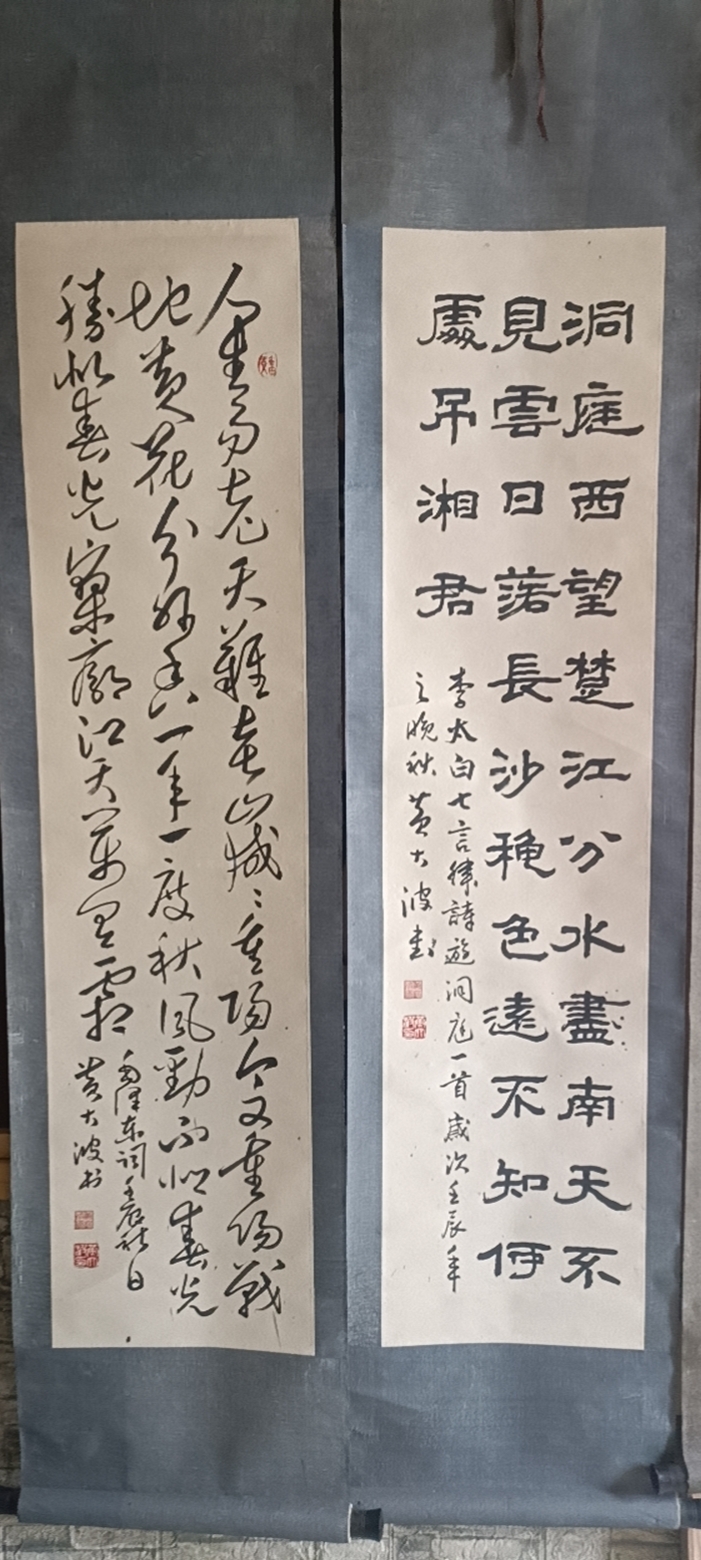 洞庭西望楚江分水盡南天不
見雲日落長沙穐色遠不知何
處吊湘君
李太白七言律詩遊洞庭一首歲次壬辰年
之晚秋黄大波書
人生易老天難老歲〻重陽今又重陽戰
地黄花分外香一年一度秋風勁不似春光
勝似春光寥廓江天萬里霜
毛澤东词壬辰秋日
黄大波书